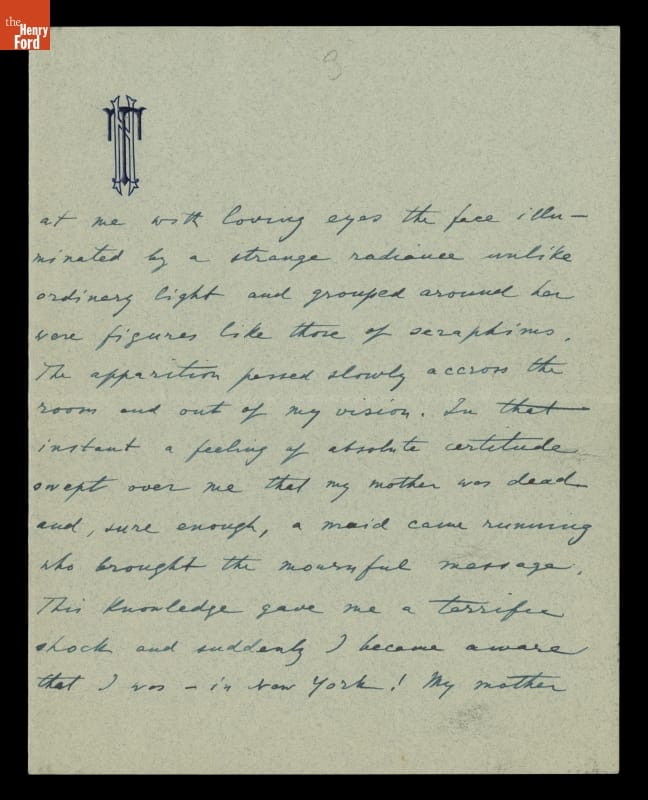 the
Henry
Ford
3
at me with loving eyes the face illu-
minated by a strange radiance unlike
ordinary light and grouped around her
were figures like those of seraphims.
The apparition passed slowly accross the
room and out of my vision. In that
instant a feeling of absolute certitude
swept over me that my mother was dead
and, sure enough, a maid came running
who brought the mournful message.
This knowledge gave me a terrific
shock and suddenly I became aware
that I was – in New York! My mother